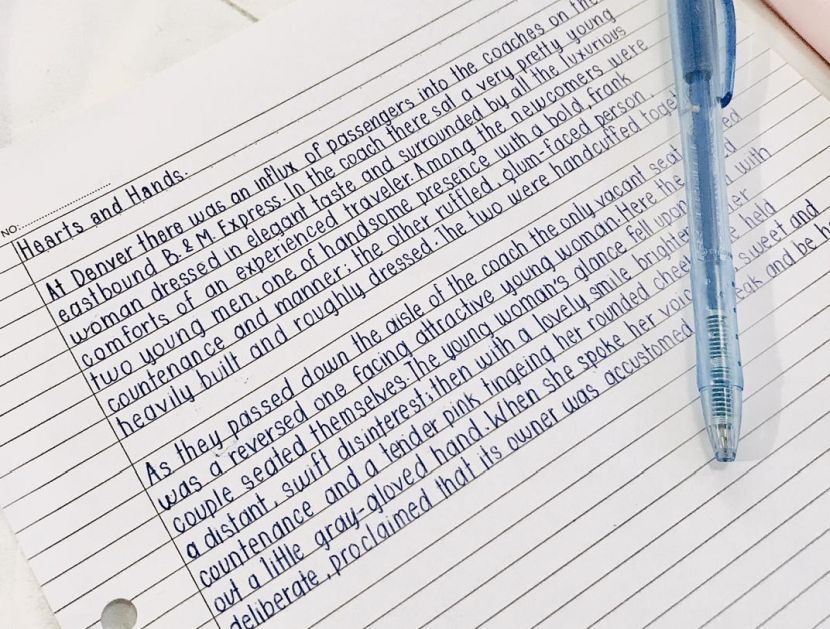 NO:
Hearts and Hands.
At Denver there was an influx of passengers into the coaches on the
eastbound B. & M. Express. In the coach there sat a very pretty young
woman dressed in elegant taste and surrounded by all the luxurious
comforts of an experienced traveler. Among the newcomers were
two young men, one of handsome presence with a bold, frank
countenance and manner; the other ruffled, glum-faced person,
heavily built and roughly dressed. The two were handcuffed
As they passed down the aisle of the coach the only vacant seat
was a reversed one facing attractive young woman. Here the
couple seated themselves. The young woman's glance fell upon with
a distant, swift disinterest; then with a lovely smile
countenance and a tender pink tingeing her rounded held
out a little gray-gloved hand. When she spoke her sweet and
deliberate, proclaimed that its owner was accustomed and be